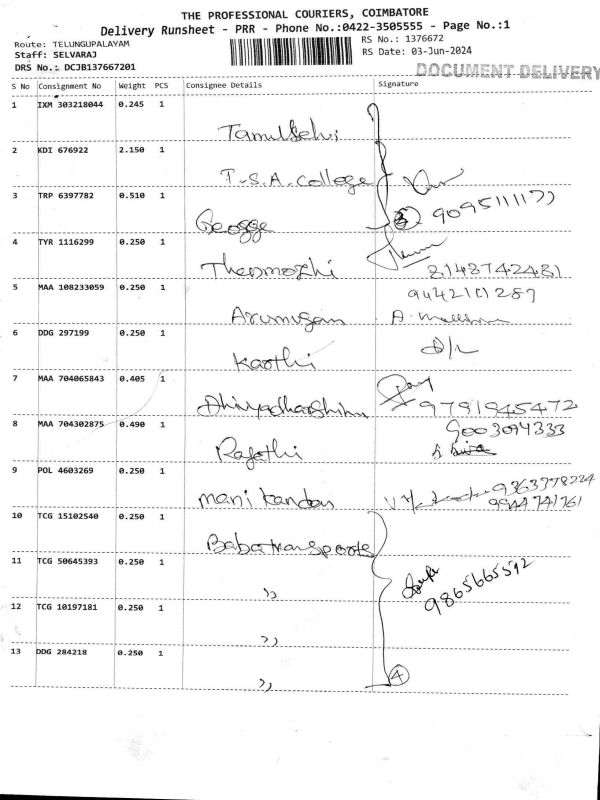 THE PROFESSIONAL COURIERS, COIMBATORE
Delivery Runsheet - PRR - Phone No.:0422-3505555 - Page No.:1
Route: TELUNGUPALAYAM
Staff: SELVARAJ
DRS No.: DCJB137667201
RS No.: 1376672
RS Date: 03-Jun-2024
DOCUMENT DELIVERY
S No Consignment No Weight PCS Consignee Details Signature
1 IXM 303218044 0.245 1
Tamilselvi
2 KDI 676922 2.150 1
T.S.A. College
3 TRP 6397782 0.510 1
George
4 TYR 1116299 0.250 1
Thenmozhi 8148742481
5 MAA 108233059 0.250 1
Arumugam
6 DDG 297199 0.250 1
Karthi
7 MAA 704065843 0.405 1
Dhivyadharshini 9791945472
8 MAA 704302875 0.490 1 9003094333
Rajathi
9 POL 4603269 0.250 1 9363778224
manikandan 9944741761
10 TCG 15102540 0.250 1
Babatransports
11 TCG 50645393 0.250 1
,, 9865665592
12 TCG 10197181 0.250 1
,,
13 DDG 284218 0.250 1
,, 4